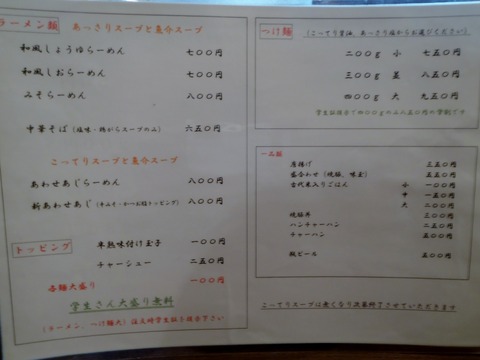 ラーメン類
あっさりスープと魚介スープ
和風しょうゆらーめん 七〇〇円
和風しおらーめん 七〇〇円
みそらーめん 八〇〇円
中華そば（塩味・鶏がらスープのみ） 六五〇円
こってりスープと魚介スープ
あわせあじらーめん 八〇〇円
新あわせあじ 八〇〇円
トッピング
半熟味付け玉子 一〇〇円
チャーシュー 二五〇円
各麺大盛り 一〇〇円
学生さん大盛り無料
（ラーメン、つけ麺共）注文時学生証を提示下さい
つけ麺 （こってり醤油、あっさり塩からお選びください）
二〇〇ｇ 小 七五〇円
三〇〇ｇ 並 八五〇円
四〇〇ｇ 大 九五〇円
学生証提示で四〇〇ｇのみ八五〇円の学割です
一品類
唐揚げ 三五〇円
盛合わせ（焼豚、味玉） 五五〇円
古代米入りごはん 小 一〇〇円
中 一五〇円
大 二〇〇円
焼豚丼 三〇〇円
ハンチャーハン 三〇〇円
チャーハン 五〇〇円
瓶ビール 五〇〇円
こってりスープは無くなり次第終了させていただきます